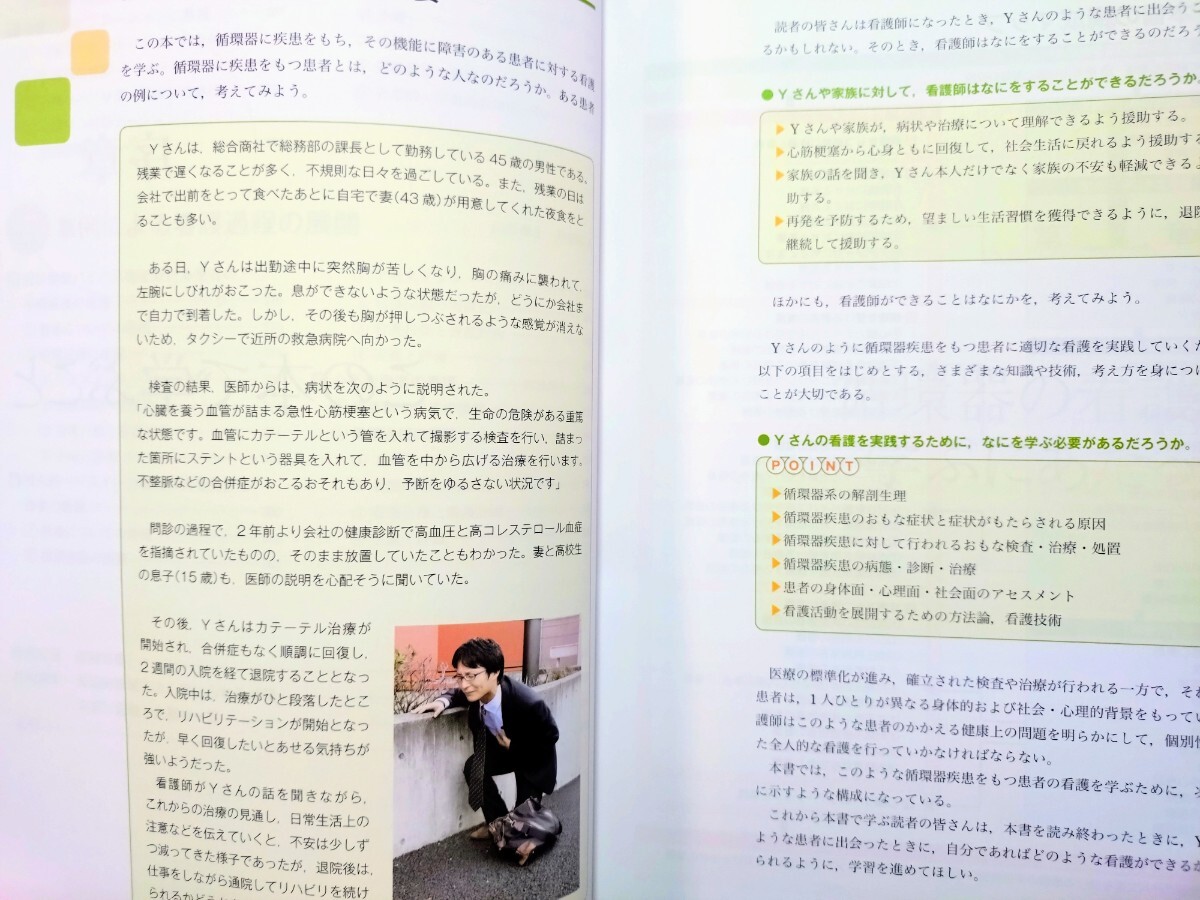 この本では，循環器に疾患をもち，その機能に障害のある患者に対する看護
を学ぶ。循環器に疾患をもつ患者とは，どのような人なのだろうか。ある患者
の例について，考えてみよう。
Yさんは，総合商社で総務部の課長として勤務している45歳の男性である。
残業で遅くなることが多く，不規則な日々を過ごしている。また，残業の日は
会社で出前をとって食べたあとに自宅で妻(43歳)が用意してくれた夜食をと
ることも多い。
ある日，Yさんは出勤途中に突然胸が苦しくなり，胸の痛みに襲われて，
左腕にしびれがおこった。息ができないような状態だったが，どうにか会社ま
で自力で到着した。しかし，その後も胸が押しつぶされるような感覚が消えな
いため，タクシーで近所の救急病院へ向かった。
検査の結果，医師からは，病状を次のように説明された。
「心臓を養う血管が詰まる急性心筋梗塞という病気で，生命の危険がある重篤
な状態です。血管にカテーテルという管を入れて撮影する検査を行い，詰まっ
た箇所にステントという器具を入れて，血管を中から広げる治療を行います。
不整脈などの合併症がおこるおそれもあり，予断をゆるさない状況です」
問診の過程で，2年前より会社の健康診断で高血圧と高コレステロール血症
を指摘されていたものの，そのまま放置していたこともわかった。妻と高校生
の息子(15歳)も，医師の説明を心配そうに聞いていた。
その後，Yさんはカテーテル治療が
開始され，合併症もなく順調に回復し，
2週間の入院を経て退院することとなっ
た。入院中は，治療がひと段落したとこ
ろで，リハビリテーションが開始となっ
たが，早く回復したいとあせる気持ちが
強いようだった。
看護師がYさんの話を聞きながら，
これからの治療の見通し，日常生活上の
注意などを伝えていくと，不安は少しず
つ減ってきた様子であったが，退院後は，
仕事をしながら通院してリハビリを続け
られるかどうか
読者の皆さんは看護師になったとき，Yさんのような患者に出会うこ
るかもしれない。そのとき，看護師はなにをすることができるのだろう
●Yさんや家族に対して，看護師はなにをすることができるだろうか。
▶Yさんや家族が，病状や治療について理解できるよう援助する。
▶心筋梗塞から心身ともに回復して，社会生活に戻れるよう援助する
▶家族の話を聞き，Yさん本人だけでなく家族の不安も軽減できるよ
助する。
▶再発を予防するため，望ましい生活習慣を獲得できるように，退院
継続して援助する。
ほかにも，看護師ができることはなにかを，考えてみよう。
Yさんのように循環器疾患をもつ患者に適切な看護を実践していくた
以下の項目をはじめとする，さまざまな知識や技術，考え方を身につけ
ことが大切である。
●Yさんの看護を実践するために，なにを学ぶ必要があるだろうか。
POINT
▶循環器系の解剖生理
▶循環器疾患のおもな症状と症状がもたらされる原因
▶循環器疾患に対して行われるおもな検査・治療・処置
▶循環器疾患の病態・診断・治療
▶患者の身体面・心理面・社会面のアセスメント
▶看護活動を展開するための方法論，看護技術
医療の標準化が進み，確立された検査や治療が行われる一方で，それ
患者は，1人ひとりが異なる身体的および社会・心理的背景をもってい
護師はこのような患者のかかえる健康上の問題を明らかにして，個別性
た全人的な看護を行っていかなければならない。
本書では，このような循環器疾患をもつ患者の看護を学ぶために，次
に示すような構成になっている。
これから本書で学ぶ読者の皆さんは，本書を読み終わったときに，Y
ような患者に出会ったときに，自分であればどのような看護ができるか
られるように，学習を進めてほしい。